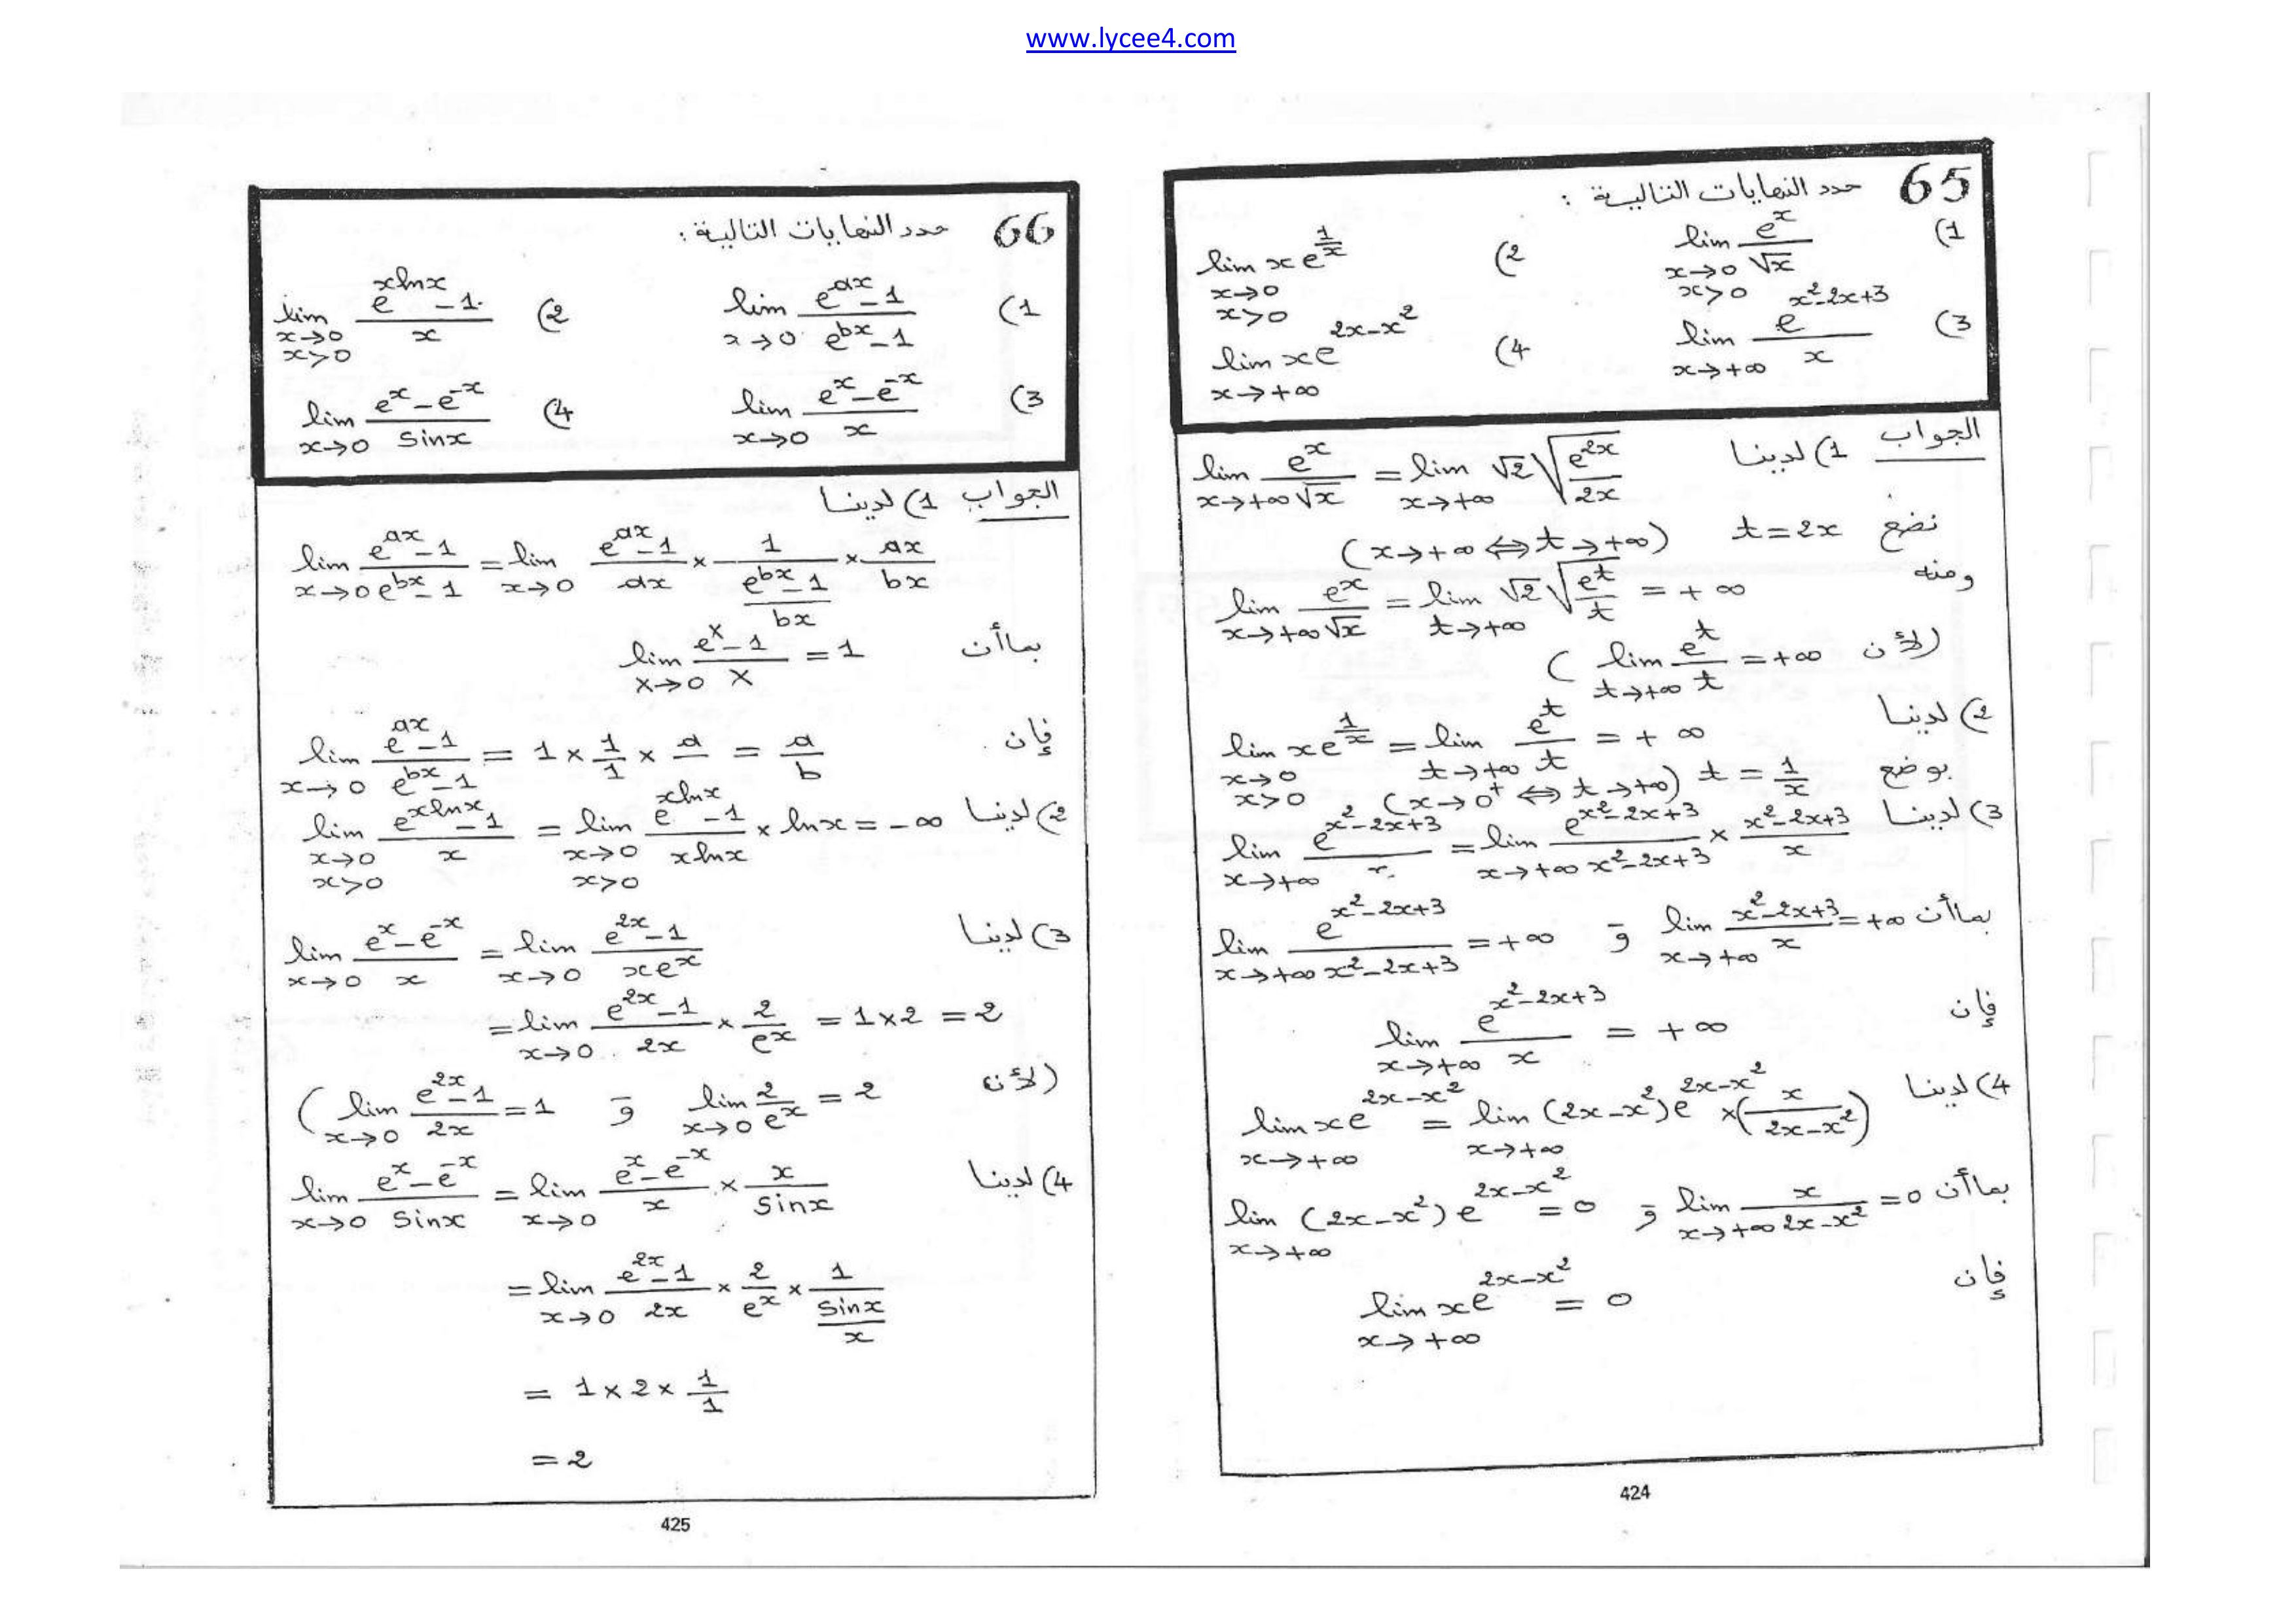 www.lycee4.com
65 حدد النهايات التالية :
1) lim_{x→0, x>0} e^x/√x
2) lim_{x→0, x>0} x e^{1/x}
3) lim_{x→+∞} e^{x²-2x+3}/x
4) lim_{x→+∞} x e^{2x-x²}
الجواب 1) لدينا lim_{x→+∞} e^x/√x = lim_{x→+∞} √2 √(e^{2x}/2x)
نضع t = 2x (x→+∞ ⇔ t→+∞)
ومنه lim_{x→+∞} e^x/√x = lim_{t→+∞} √2 √(e^t/t) = +∞
(لأن lim_{t→+∞} e^t/t = +∞)
2) لدينا lim_{x→0, x>0} x e^{1/x} = lim_{t→+∞} e^t/t = +∞
بوضع t = 1/x (x→0⁺ ⇔ t→+∞)
3) لدينا lim_{x→+∞} e^{x²-2x+3}/x = lim_{x→+∞} e^{x²-2x+3}/(x²-2x+3) × (x²-2x+3)/x
بما أن lim_{x→+∞} (x²-2x+3)/x = +∞ و lim_{x→+∞} e^{x²-2x+3}/(x²-2x+3) = +∞
فإن lim_{x→+∞} e^{x²-2x+3}/x = +∞
4) لدينا lim_{x→+∞} x e^{2x-x²} = lim_{x→+∞} (2x-x²) e^{2x-x²} × (x/(2x-x²))
بما أن lim_{x→+∞} x/(2x-x²) = 0 و lim_{x→+∞} (2x-x²) e^{2x-x²} = 0
فإن lim_{x→+∞} x e^{2x-x²} = 0
424
66 حدد النهايات التالية :
1) lim_{x→0} (e^{ax}-1)/(e^{bx}-1)
2) lim_{x→0, x>0} (e^{xlnx}-1)/x
3) lim_{x→0} (e^x-e^{-x})/x
4) lim_{x→0} (e^x-e^{-x})/sinx
الجواب 1) لدينا
lim_{x→0} (e^{ax}-1)/(e^{bx}-1) = lim_{x→0} (e^{ax}-1)/ax × 1/((e^{bx}-1)/bx) × ax/bx
بما أن lim_{X→0} (e^X-1)/X = 1
فإن lim_{x→0} (e^{ax}-1)/(e^{bx}-1) = 1 × 1/1 × a/ = a/b
2) لدينا lim_{x→0, x>0} (e^{xlnx}-1)/x = lim_{x→0, x>0} (e^{xlnx}-1)/xlnx × lnx = -∞
3) لدينا lim_{x→0} (e^x-e^{-x})/x = lim_{x→0} (e^{2x}-1)/(x e^x)
= lim_{x→0} (e^{2x}-1)/2x × 2/e^x = 1×2 = 2
(لأن lim_{x→0} 2/e^x = 2 و lim_{x→0} (e^{2x}-1)/2x = 1)
4) لدينا lim_{x→0} (e^x-e^{-x})/sinx = lim_{x→0} (e^x-e^{-x})/x × x/sinx
= lim_{x→0} (e^{2x}-1)/2x × 2/e^x × 1/(sinx/x)
= 1 × 2 × 1/1
= 2
425